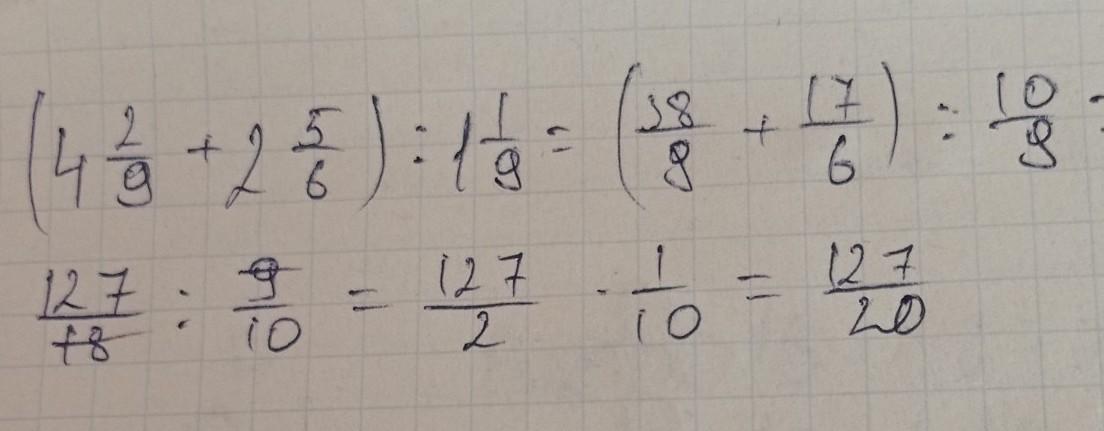 (4 2/9 + 2 5/6) : 1 1/9 = (38/9 + 17/6) : 10/9 =
127/18 : 9/10 = 127/2 · 1/10 = 127/20